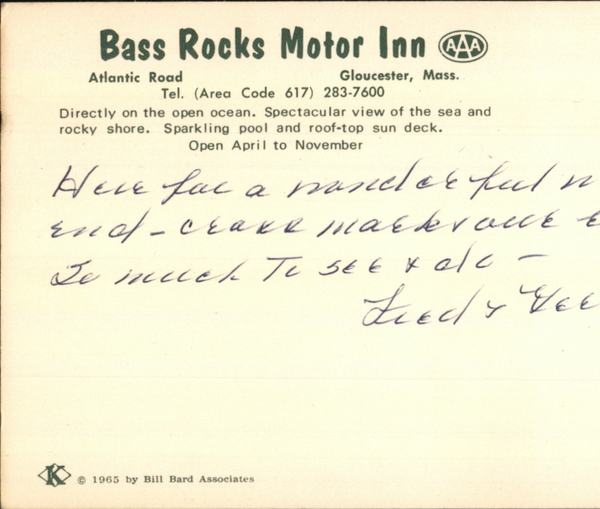 Bass Rocks Motor Inn AAA
Atlantic Road Gloucester, Mass.
Tel. (Area Code 617) 283-7600
Directly on the open ocean. Spectacular view of the sea and
rocky shore. Sparkling pool and roof-top sun deck.
Open April to November
Here for a wonderful
end - cross marks our
So much to see & do -
Fred &
K © 1965 by Bill Bard Associates